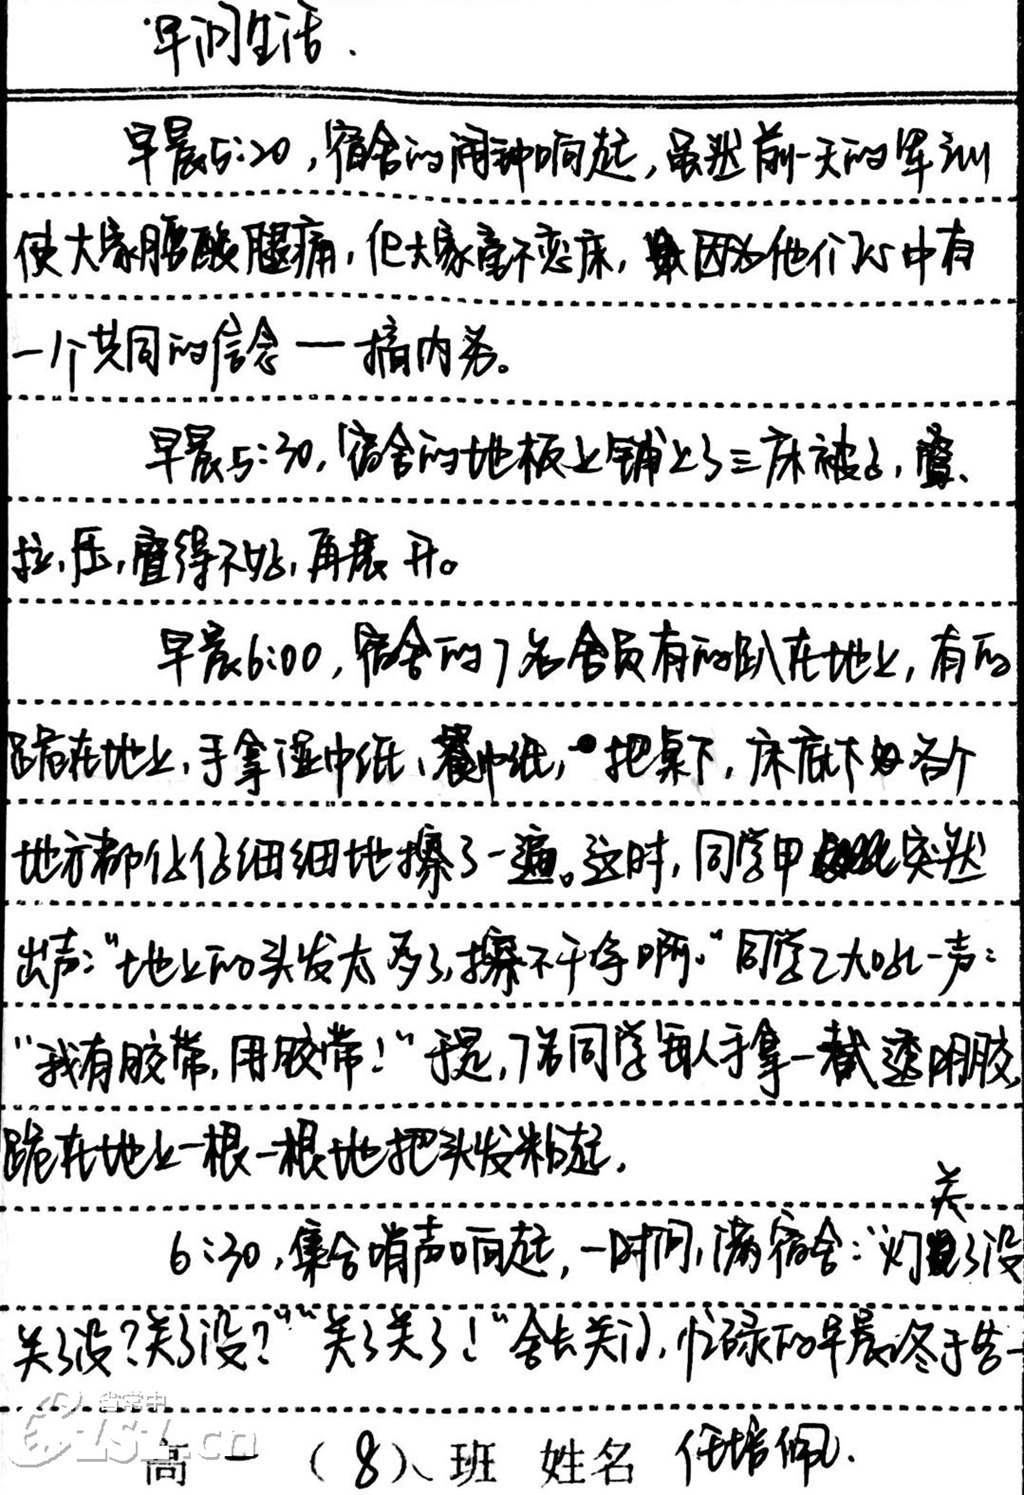 早间生活.
早晨5:20,宿舍的闹钟响起,虽然前一天的军训
使大家腰酸腿痛,但大家毫不恋床,因为他们心中有
一个共同的信念一搞内务。
早晨5:30,宿舍的地板上铺上了三床被子,叠、
拉,压,叠得不好,再展开。
早晨6:00,宿舍的7名舍员有的趴在地上,有的
跪在地上,手拿湿巾纸、餐巾纸,把桌下,床底下各个
地方都仔仔细细地擦了一遍。这时,同学甲突然
出声:"地上的头发太多了,擦不干净啊。"同学乙大吼一声:
"我有胶带,用胶带!"于是,7名同学每人手拿一截透明胶,
跪在地上一根一根地把头发粘起.
6:30,集合哨声响起,一时间,满宿舍:"灯关了没
关了没?关了没?""关了关了!"舍长关门,忙碌的早晨终于告一
省常中
CZSZ.cn
高一(8)班 姓名 任培佩.